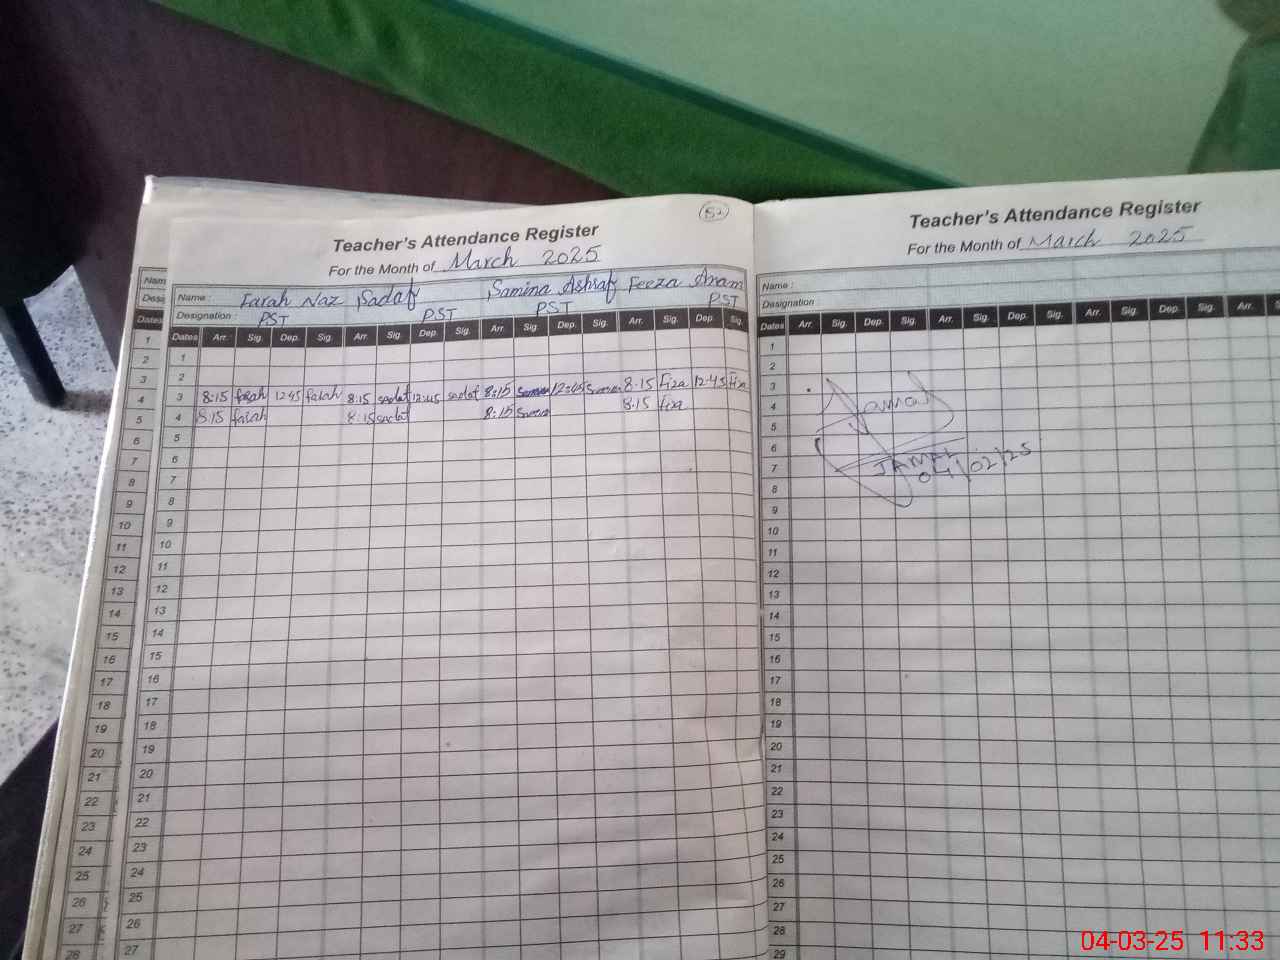 52
Teacher's Attendance Register
For the Month of March 2025
Name : Farah Naz Sadaf Samina Ashraf Feeza Anam
Designation : PST PST PST PST
Dates Arr. Sig. Dep. Sig. Arr. Sig. Dep. Sig. Arr. Sig. Dep. Sig. Arr. Sig. Dep. Sig.
1
2
3 8:15 farah 12:45 farah 8:15 sadaf 12:45 sadaf 8:15 12:45 8:15 Fiza 12:45 Fiza
4 8:15 farah 8:15 sadaf 8:15 8:15 Fiza
5
6
7
8
9
10
11
12
13
14
15
16
17
18
19
20
21
22
23
24
25
26
27
Teacher's Attendance Register
For the Month of March 2025
Name :
Designation :
Dates Arr. Sig. Dep. Sig. Arr. Sig. Dep. Sig. Arr. Sig. Dep. Sig. Arr. Sig.
1
2
3
4 Jamal
5
6
7 JAMAL
8 04/02/25
9
10
11
12
13
14
15
16
17
18
19
20
21
22
23
24
25
26
27
28
29
Nam
Desi
Dates
1
2
3
4
5
6
7
8
9
10
11
12
13
14
15
16
17
18
19
20
21
22
23
24
25
26
27
28
04-03-25 11:33